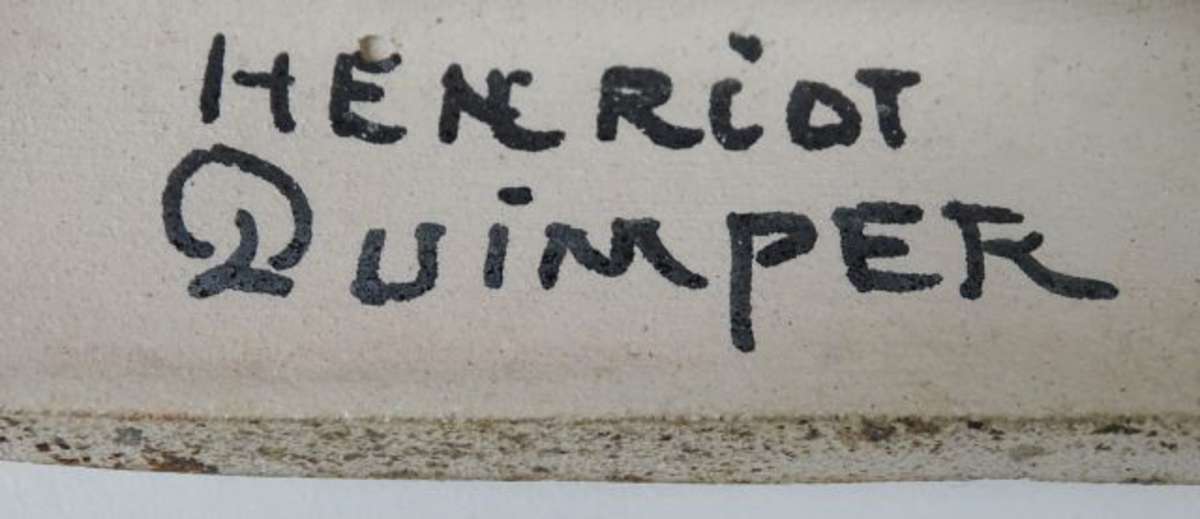 HENRiOT
QUiMPER